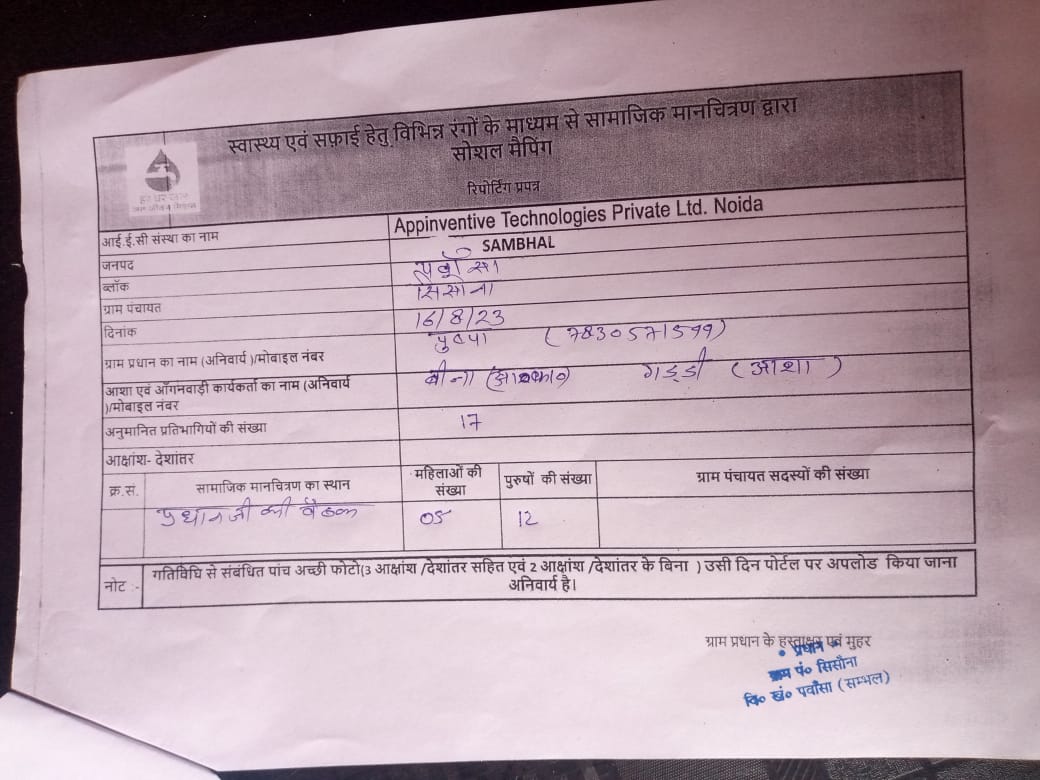 स्वास्थ्य एवं सफ़ाई हेतु विभिन्न रंगों के माध्यम से सामाजिक मानचित्रण द्वारा
सोशल मैपिंग
रिपोर्टिंग प्रपत्र
हर घर जल
जल जीवन मिशन
आई.ई.सी संस्था का नाम Appinventive Technologies Private Ltd. Noida
जनपद SAMBHAL
ब्लॉक पवाँसा
ग्राम पंचायत सिसौना
दिनांक 16/8/23
ग्राम प्रधान का नाम (अनिवार्य )/मोबाइल नंबर पुष्पा (7830571599)
आशा एवं आँगनवाड़ी कार्यकर्ता का नाम (अनिवार्य
)/मोबाइल नंबर वीना गड्डी (आशा)
अनुमानित प्रतिभागियों की संख्या 17
आक्षांश- देशांतर
क्र.सं. सामाजिक मानचित्रण का स्थान महिलाओं की संख्या पुरुषों की संख्या ग्राम पंचायत सदस्यों की संख्या
प्रधानजी की बैठक 05 12
नोट :- गतिविधि से संबंधित पांच अच्छी फोटो(3 आक्षांश /देशांतर सहित एवं 2 आक्षांश /देशांतर के बिना ) उसी दिन पोर्टल पर अपलोड किया जाना
अनिवार्य है।
ग्राम प्रधान के हस्ताक्षर एवं मुहर
प्रधान
ग्राम पं० सिसौना
वि० खं० पवाँसा (सम्भल)